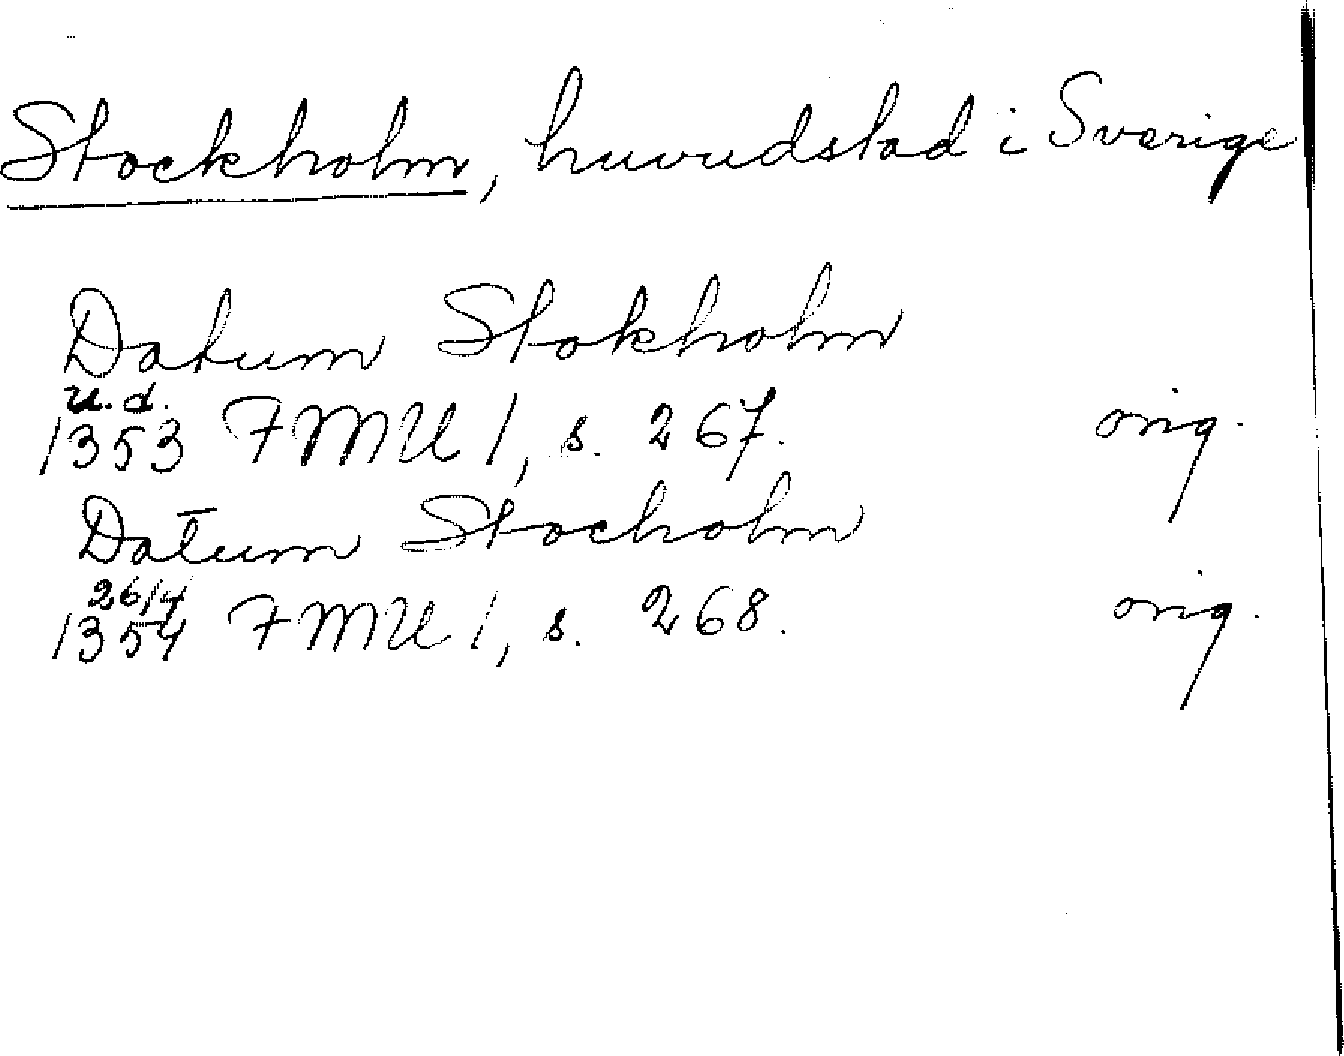 Stockholm, huvudstad i Sverige
Datum Stokholm
u.d.
1353 FMU I, s. 267. orig.
Datum Stocholm
26/4
1354 FMU I, s. 268. orig.